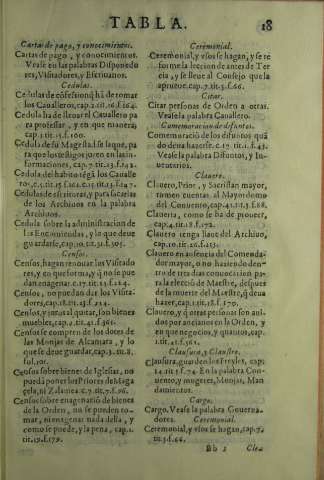 TABLA.
18
Cartas de pago, y conocimientos.
Cartas de pago, y conocimientos.
Vease en las palabras Disponedo
res, Visitadores, y Escriuanos.
Cedulas.
Cedulas de cõfession q̃ hã de tomar
los Caualleros, cap.2.tit.16.f.164.
Cedula ha de lleuar el Cauallero pa
ra professar, y en que manera,
cap.1.tit.5.f.100.
Cedula de su Magestad se saque, pa
ra que los testigos juren en las in-
formaciones, cap.7.tit.13.f.142.
Cedula del habito tẽga los Caualle
Cedulas de escrituras, y para sacarlas
de los Archiuos en la palabra
Archiuos.
Cedula sobre la administracion de
las Encomiendas, y lo que deue
guardarse, cap.10.tit.35.f.305.
Censos.
Censos, hagan renouar los Visitado
res, y en que forma, y q̃ no se pue
dan enagenar.c.17.tit.23.f.214.
Censos, no puedan dar los Visita-
dores, cap.18.tit.23.f.214.
Censos, y juros al quitar, son bienes
muebles, cap.2.tit.41.f.361.
Censos se compren de los dotes de
las Monjas de Alcantara, y lo
que se deue guardar, cap.3.tit.18.
fol.
Censos sobre bienes de Iglesias, no
puedã poner los Priores de Maga
çela, ni Zalamea.c.7.tit.7.f.96.
Censos sobre enagenaciõ de bienes
de la Orden, no se pueden to-
mar, ni enagenar nada della, y
como se puede, y la pena, cap.1.
tit.19.f.179.
Ceremonial.
Ceremonial, y vsos se hagan, y se re
forme la leccion de antes de Ter
cia, y se lleue al Consejo que la
aprueue.cap.7.tit.3.f.66.
Citar.
Citar personas de Orden a otras.
Vease la palabra Cauallero.
Commemoracion de difuntos.
Commemoraciõ de los difuntos quã
do deua hazerse.c.17.tit.1.f.43.
Vease la palabra Difuntos, y In-
uentarios.
Clauero.
Clauero, Prior, y Sacristan mayor,
tomen cuentas al Mayordomo
del Conuento, cap.41.tit.3.f.88.
Claueria, como se ha de proueer,
cap.4.tit.18.f.172.
Clauero tenga llaue del Archiuo,
cap.10.tit.26.f.213.
Clauero en ausencia del Comenda-
dor mayor, o no haziendo den-
tro de tres dias conuocacion pa-
ra la eleccio de Maestre, despues
de la muerte del Maestre, q̃ deua
hazer, cap.1.tit.18.f.170.
Clauero, y q̃ otras personas son aui-
dos por ancianos en la Orden, y
en que negocios, y quantos, cap.
1.tit.41.f.361.
Clausura, y Claustro.
Clausura, guarden los Freyles, cap.
24.tit.3.f.74. En la palabra Con-
uento, y mugeres, Monjas, Man
damientos.
Cargo.
Cargo. Vease la palabra Gouerna-
dores.
Ceremonial.
Ceremonial, y vsos se hagan, cap.7.
tit.3.f.66.
Bb 2
Clea